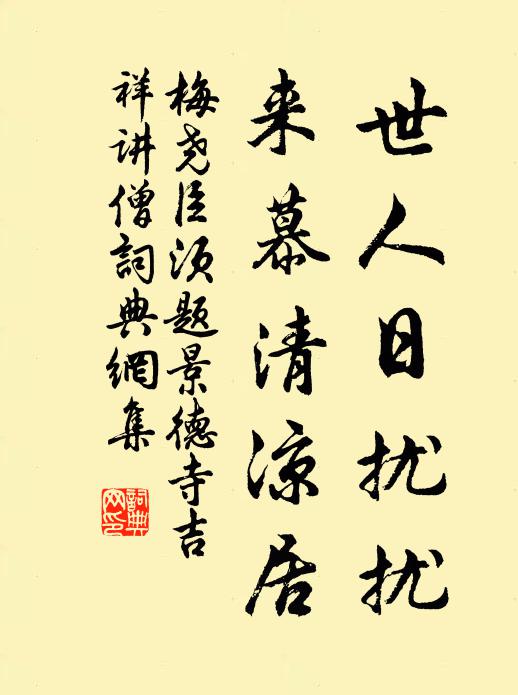 世人日扰扰
来慕清凉居
梅尧臣须题景德寺吉
祥讲僧詞典網集
詞典網印